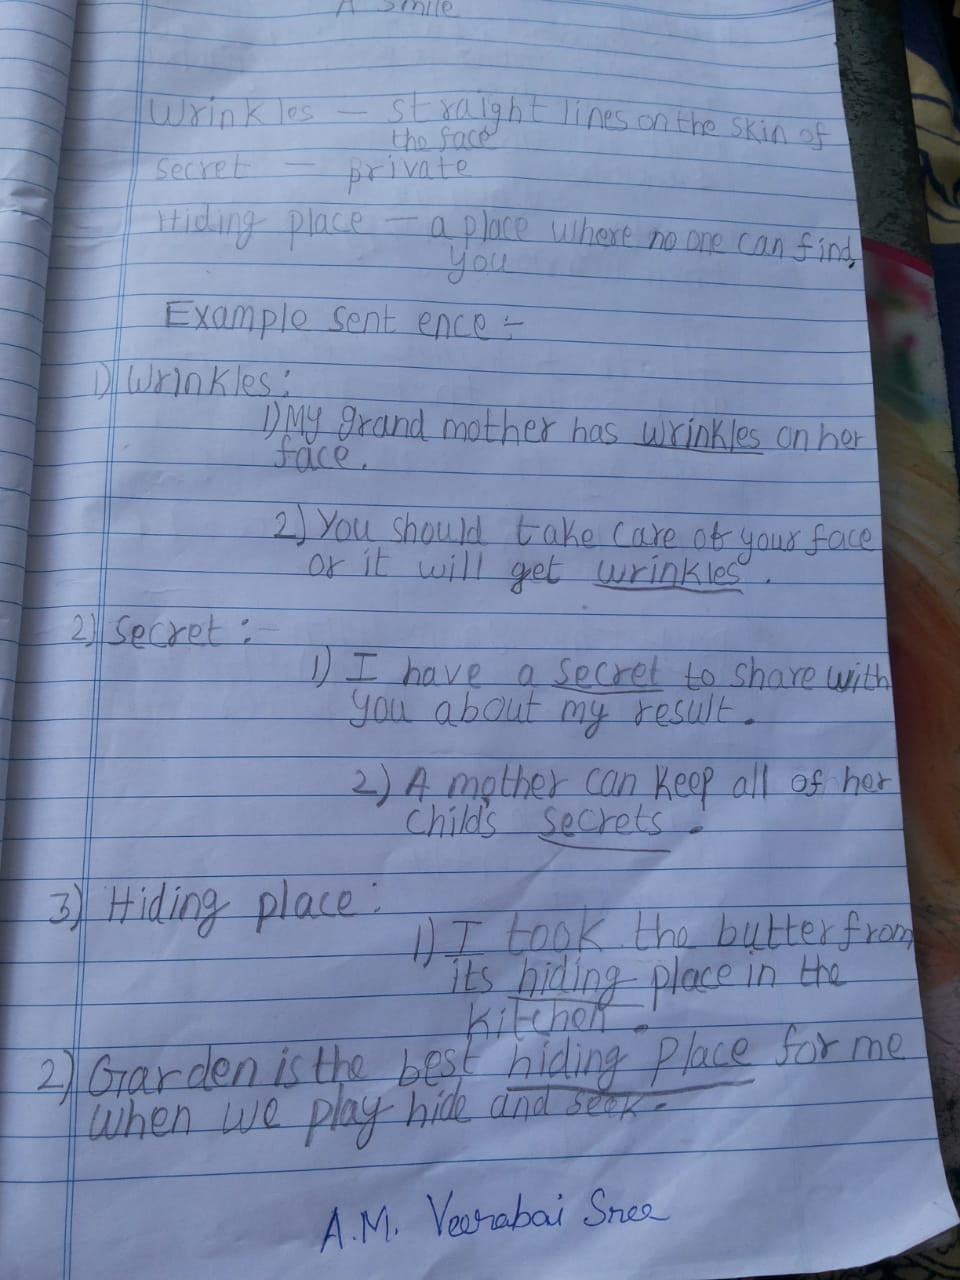 A Smile
Wrinkles — straight lines on the skin of
the face
secret — private
Hiding place — a place where no one can find
you
Example sent ence :-
1) Wrinkles :
1) My grand mother has wrinkles on her
face.
2) You should take care of your face
or it will get wrinkles .
2) Secret :-
1) I have a secret to share with
you about my result .
2) A mother can keep all of her
child's secrets .
3) Hiding place :
1) I took the butter from
its hiding place in the
kitchen .
2) Garden is the best hiding place for me
when we play hide and seek .
A.M. Veerabai Sree